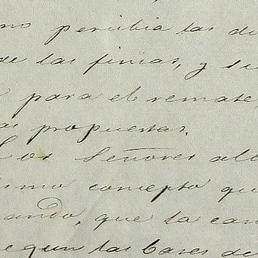 no percibia las di
de las fincas, y su
para el remate,
as propuestas.
Los Señores al
ismo concepto qu
ando, que la can
segun las bases de